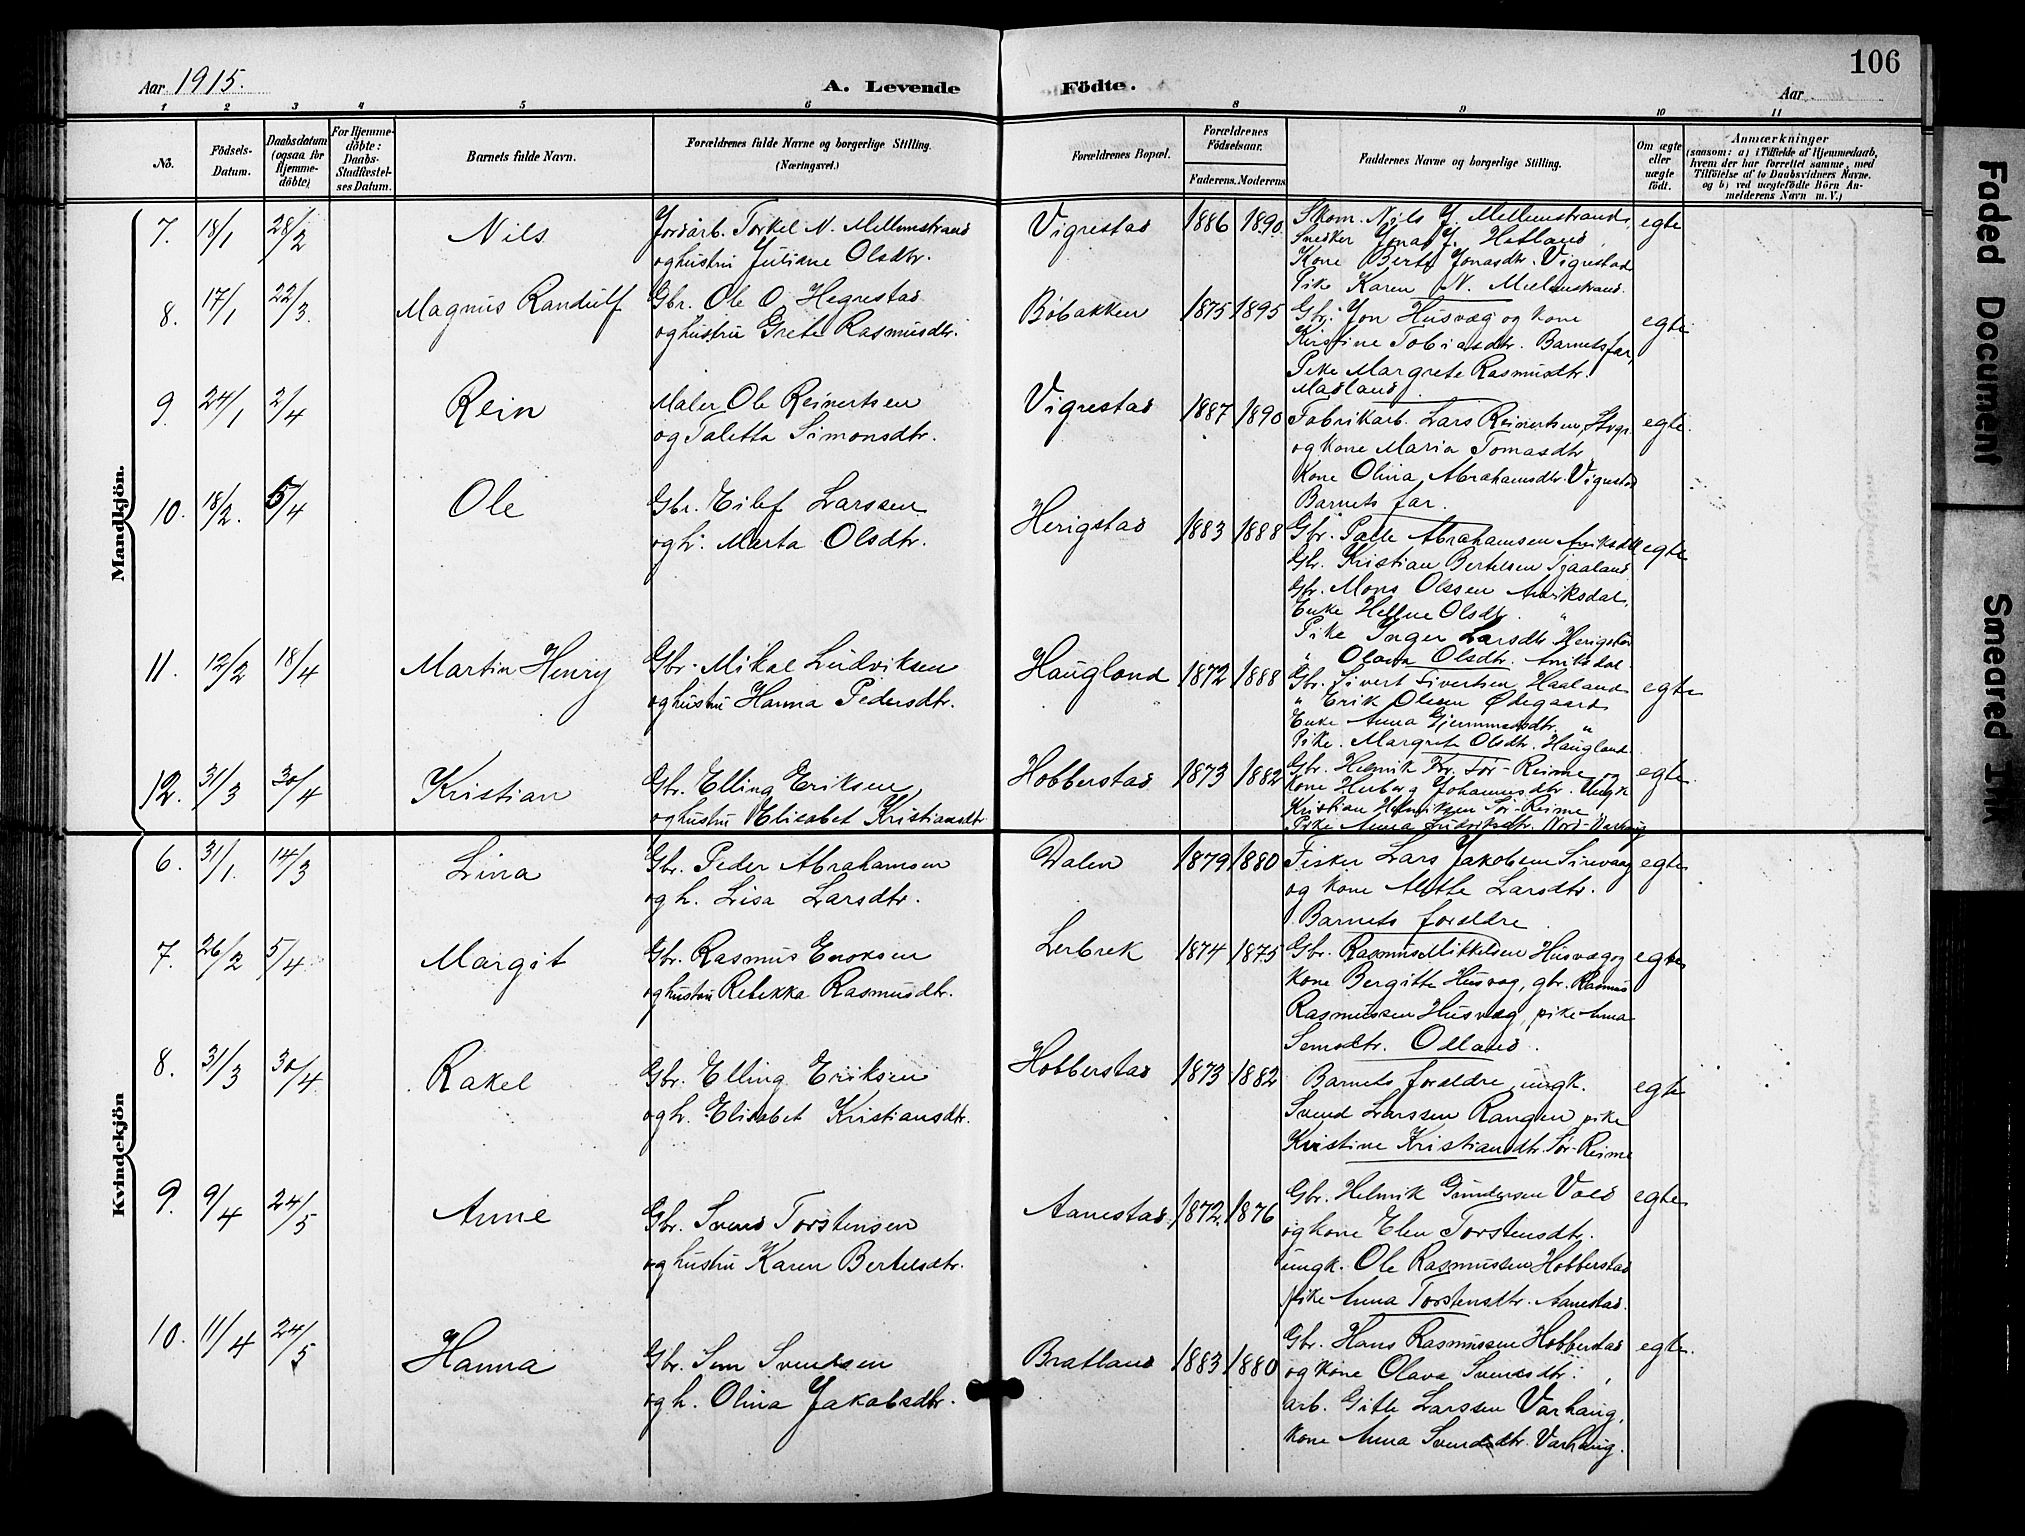 106
Aar 1915.
A. Levende Födte.
Aar
1 2 3 4 5 6 8 9 10 11
No.
Födsels-Datum.
Daabsdatum (ogsaa for Hjemmedöbte)
For Hjemmedöbte: Daabs-Stadfæstelses Datum.
Barnets fulde Navn.
Forældrenes fulde Navne og borgerlige Stilling. (Næringsvei.)
Forældrenes Bopæl.
Forældrenes Födselsaar.
Faderens. Moderens
Faddernes Navne og borgerlige Stilling.
Om ægte eller uægte födt.
Anmærkninger
(saasom: a) i Tilfælde af Hjemmedaab, hvem der har forrettet samme, med Tilföielse af to Daabsvidners Navne. og b) ved uægtefödte Börn Anmelderens Navn m. V.)
Mandkjön.
7. 18/1 28/2 Nils
Jordarb. Torkel N. Mellemstrand
og hustru Juliane Olsdtr.
Vigrestad 1886 1890
Skom. Nils J. Mellemstrand,
Snedker Jonas J. Hetland,
Kone Berte Jonasdtr. Vigrestad
Pike Karen N. Mellemstrand.
egte
8. 17/1 22/3. Magnus Randulf
Gbr. Ole O. Hegrestad
og hustru Grete Rasmusdtr.
Bøbakken 1875 1895
Gbr. Jon Husvæg og kone
Kirstine Tobiasdtr. Barnets far,
Pike Margrete Rasmusdtr.
Madland.
egte
9. 24/1 2/4 Rein
Maler Ole Reinertsen
og Taletta Simonsdtr.
Vigrestad 1887 1890
Fabrikarb. Lars Reinertsen,
og kone Maria Tomasdtr
Kone Olina Abrahamsdtr. Vigrestad
Barnets far.
egte.
10. 18/2. 5/4 Ole
Gbr. Eilef Larssen
og h. Marta Olsdtr.
Herigstad 1883 1888
Gbr. Palle Abrahamsen Aniksdal
Gbr. Kristian Bertelsen Tjaaland
Gbr. Mons Olssen Aniksdal,
Enke Hellene Olsdtr. "
Pike Inger Larsdtr Herigstad
" Olava Olsdtr. Aniksdal.
egte
11. 12/2 18/4 Martin Henry
Gbr. Mikal Ludviksen
og hustru Hanna Pedersdtr.
Haugland 1872 1888
Gbr. Sivert Sivertsen Haaland
" Erik Olesen Ødegaard
Enke Anna "
Pike. Margrete Olsdtr. Haugland.
egte
12. 31/3 30/4 Kristian
Gbr. Elling Eriksen
og hustru Elisabet Kristiansdtr
Hobberstad 1873 1882
Gbr. Helmik Kr. Sør-Reime og
kone Herborg Johannesdtr. Ungk
Kristian Helmiksen Sør-Reime
Pike Anna Ludviksdtr. Nord-Varhaug
egte.
Kvindekjön
6. 31/1. 14/3 Lina
Gbr. Peder Abrahamsen
og h. Lisa Larsdtr.
Dalen 1879 1880
Fisker Lars Jakobsen Sirevaag
og kone Alette Larsdtr.
Barnets foreldre.
egte
7. 26/2 5/4 Margit
Gbr. Rasmus Enoksen
og hustru Rebekka Rasmusdtr.
Lerbrek 1874 1875
Gbr. Rasmus Mikkelsen Husvæg og
kone Bergitte Husvæg, gbr. Rasmus
Rasmussen Husvæg, pike Anna
Semsdtr. Odland.
egte
8. 31/3 30/4 Rakel
Gbr. Elling Eriksen
og h. Elisabet Kristiansdtr.
Hobberstad 1873 1882
Barnets foreldre, ungk.
Svend Larssen Rangen pike
Kristine Kristiansdtr. Sør-Reime
egte
9. 9/4 24/5 Anne
Gbr. Svend Torstensen
og hustru Karen Bertelsdtr.
Aanestad 1872 1876
Gbr. Helmik Gundersen Vold
og kone Elen Torstensdtr.
ungk. Ole Rasmussen Hobberstad
pike Anna Torstensdtr. Aanestad.
egte
10. 11/4 24/5 Hanna
Gbr. Sem Svendsen
og h. Olina Jakobsdtr.
Bratland 1883 1880
Gbr. Hans Rasmussen Hobberstad
og kone Olava Svendsdtr.
arb. Gitle Larssen Varhaug,
kone Anna Svendsdtr. Varhaug.
egte.
Faded Document
Smeared Ink